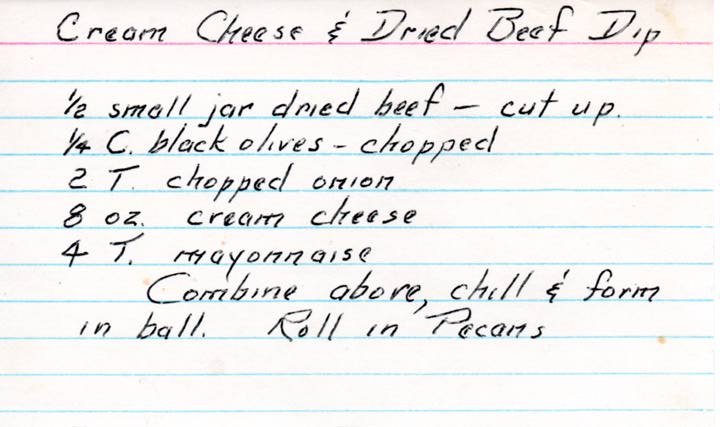 Cream Cheese & Dried Beef Dip
1/2 small jar dried beef - cut up.
1/4 C. black olives - chopped
2 T. chopped onion
8 oz. cream cheese
4 T. mayonnaise
Combine above, chill & form
in ball. Roll in Pecans